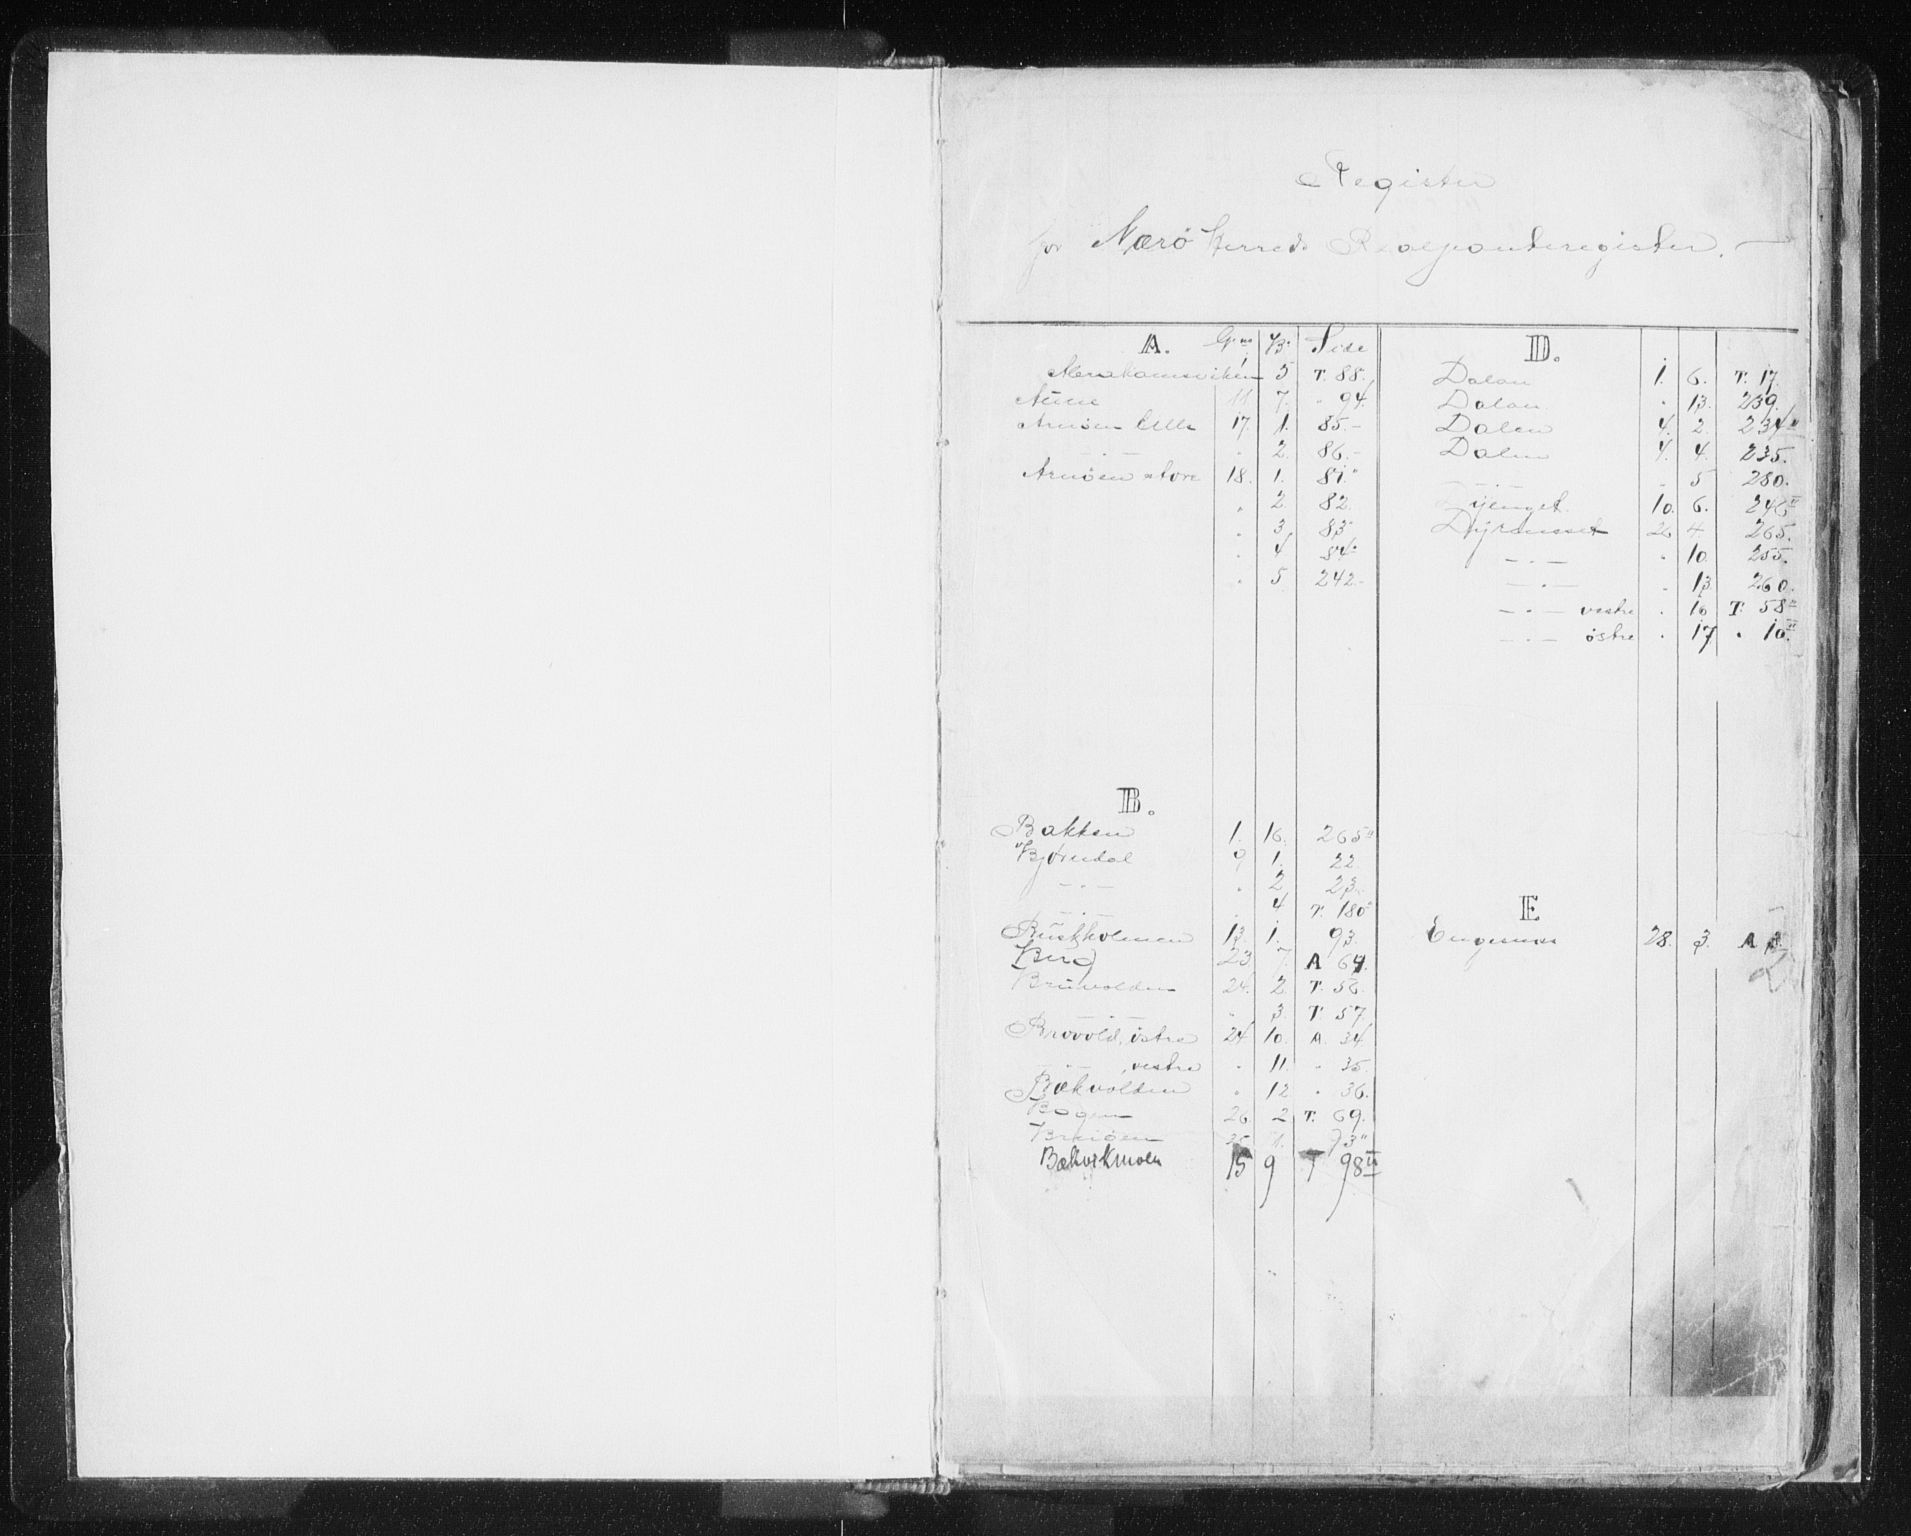 Register
for Nærö Herreds Realpanteregister. —
A. Gno B. Side
Abrahamsviken 1 5 T. 88.
Aune 11 7. " 94.
Arnöen lille 17. 1. 85.-
— . — . 2. 86.-
Arnöen store 18. 1. 81.
. 2. 82.
. 3. 83
. 4 84
. 5 242.-
B.
Bakken 1. 16. 265"
Bjørndal 9 1. 22.
— . — . 2 23.
— . — . 4 T. 180
Buskholmen 13. 1. 93.
Berg 23 7. A 64.
Brunvolden 24. 2. T. 56.
— . — . 3. T. 57.
Brovold, östre 24 10. A. 34
— . — , vestre . 11. . 35.
Bækvolden . 12 . 36.
Bogen 26 2 T. 69.
Braöen 25 1. 73"
Bækvikmoen 15 9 T 98"
D.
Dalan 1. 6. T. 17.
Dalan . 13. 239.
Dalen 4. 2. 234"
Dalen 4. 4. 235.
— . — . 5 280.
Dyenget 10. 6. 246"
Dyrandset 26 4 265.
— . — . 10. 255.
— . — . 13. 260.
— . — vestre . 16 T. 58"
— . — östre . 17 . 10"
E
Engesnes 28. 3. A 3.